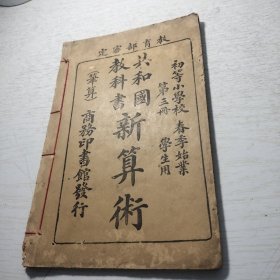 教育部審定
初等小學校 春季始業
第三冊 學生用
共和國
教科書
新算術
筆算
商務印書館發行